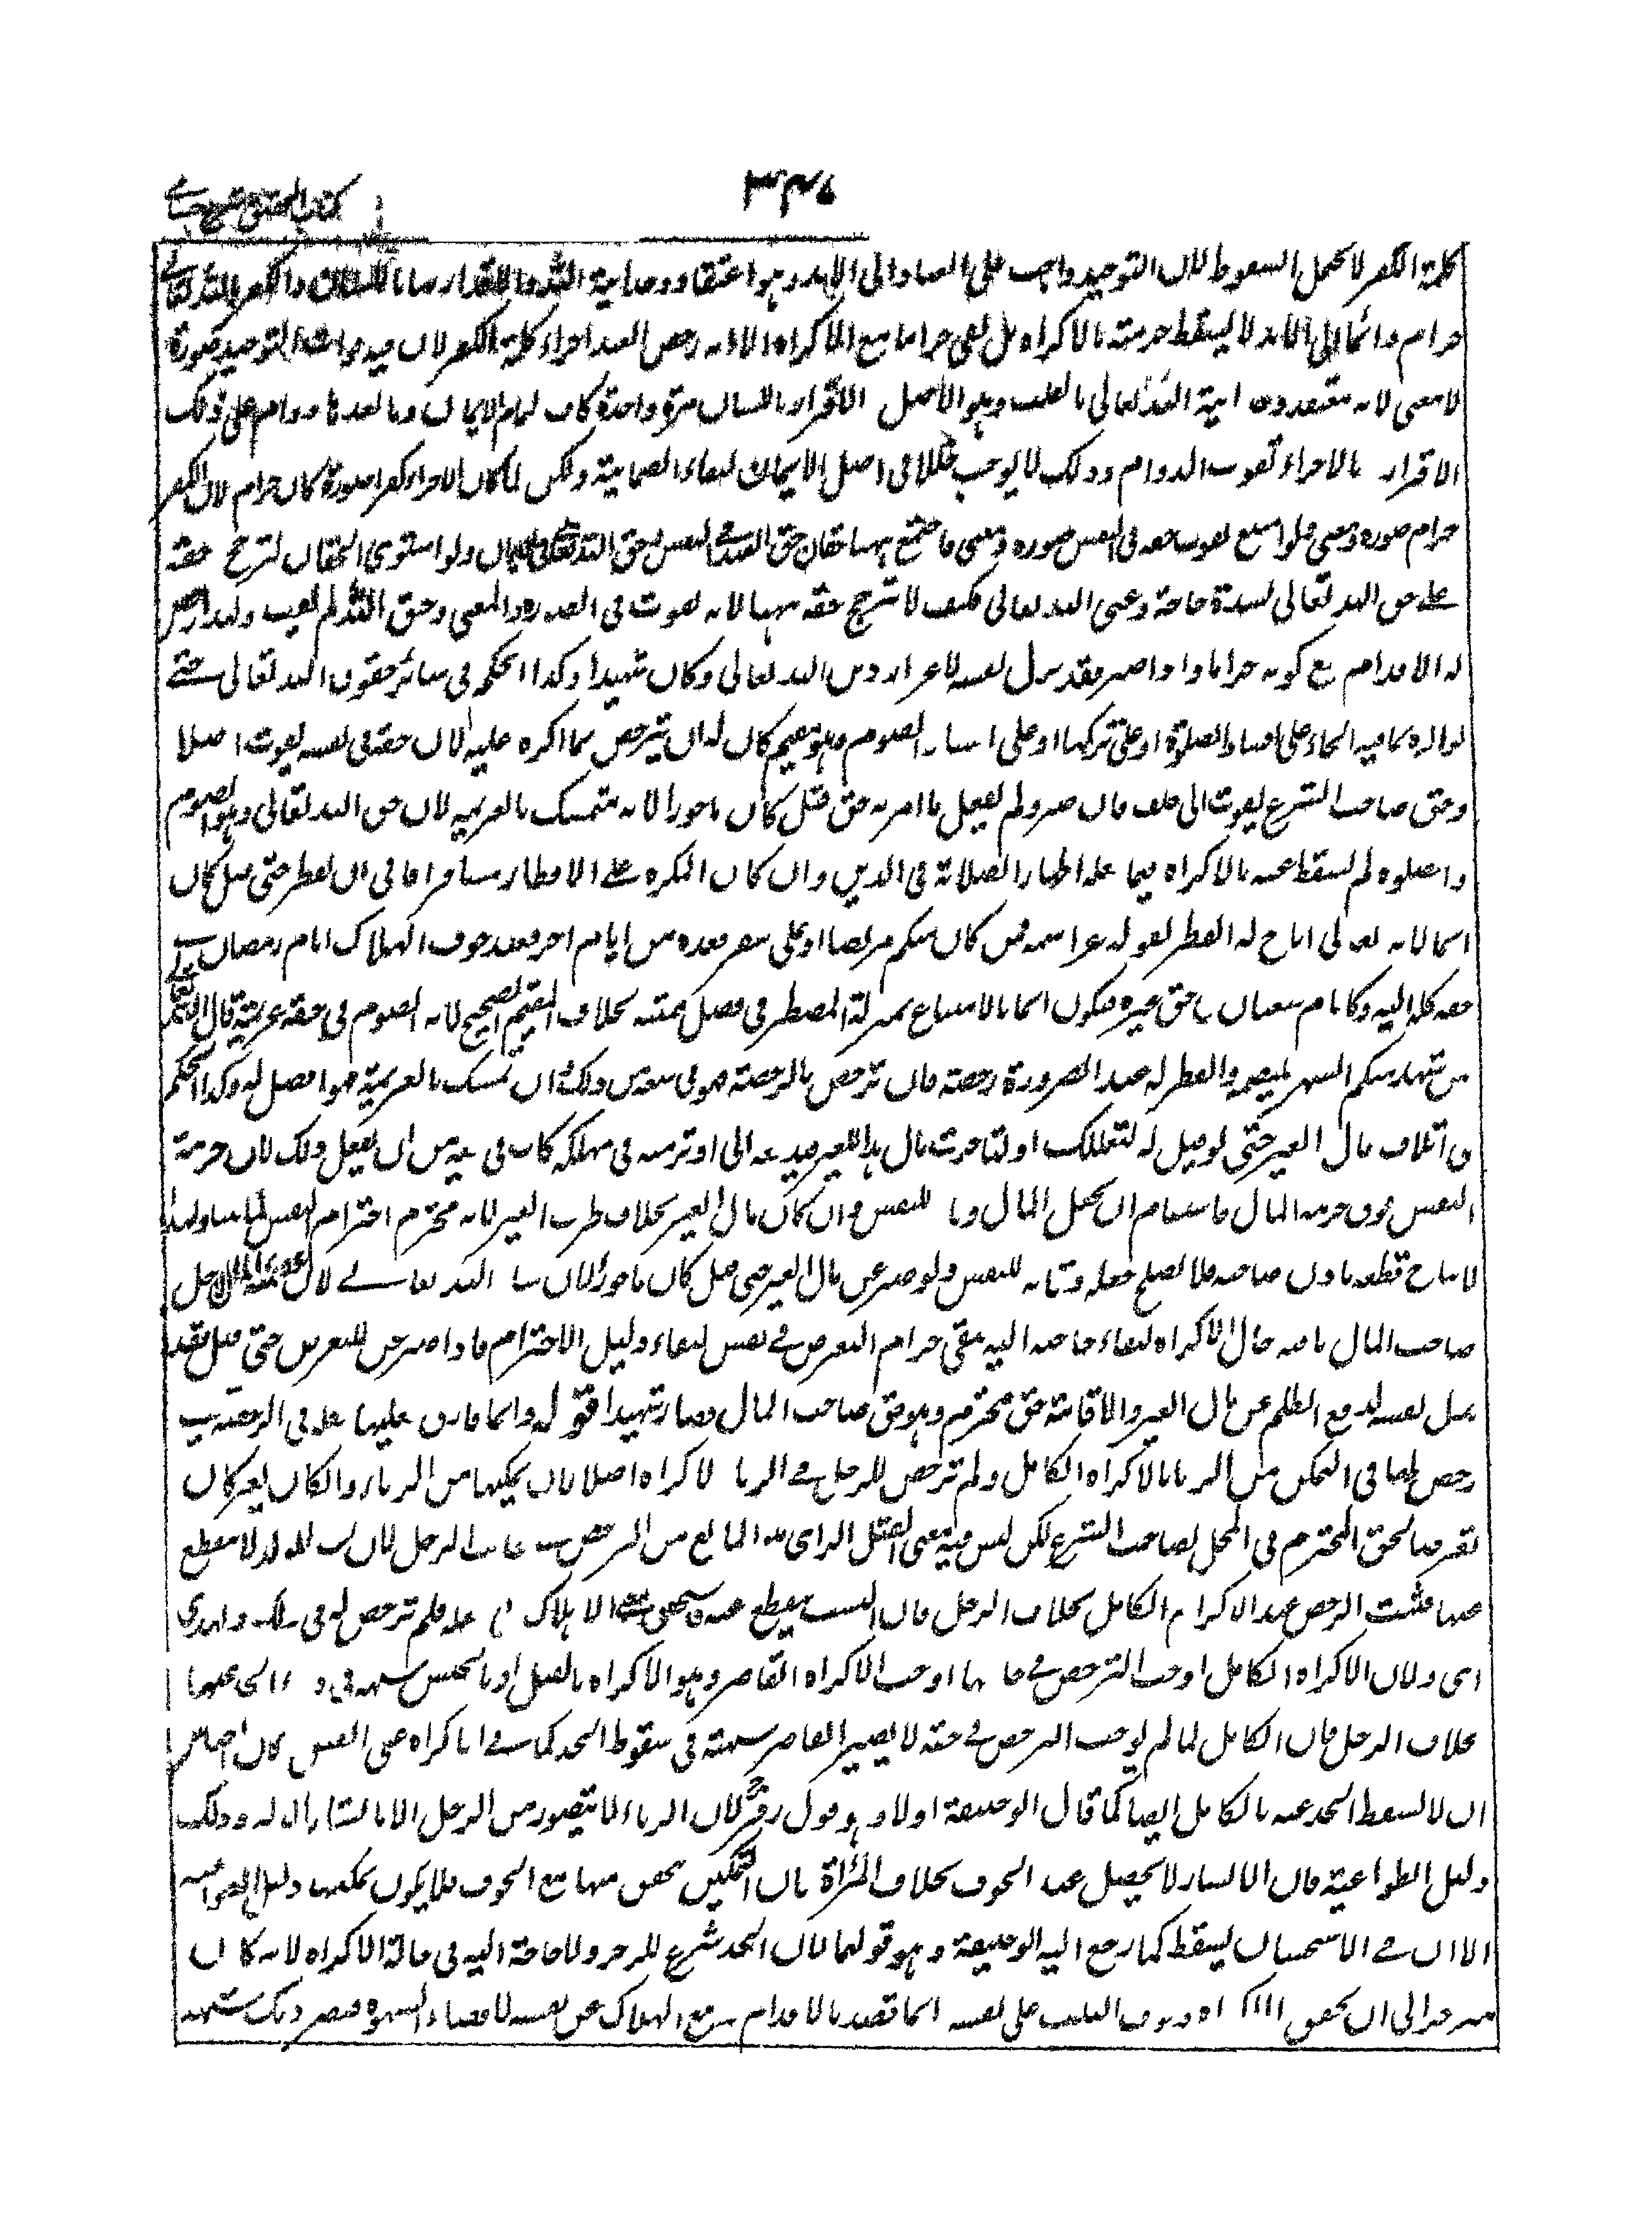 كتاب التحقيق شرح حسامي
كلمة الكفر لا يحتمل السقوط لان التوحيد واجب على العباد الى الابد وهو اعتقاد وحدانية الله والاقرار بها باللسان والكفر بالله تعالى
حرام دائما الى الابد لا يسقط حرمته بالاكراه بل بقى حراما مع الاكراه الا انه رخص للعبد اجراء كلمة الكفر لان فيه فوات التوحيد صورة
لا معنى لانه معتقد وحدانية الله تعالى بالقلب وهو الاصل الاقرار باللسان مرة واحدة كاف لتمام الايمان وما بعدها دوام على ذلك
الاقرار بالاجراء تفوت الدوام وذلك لا يوجب خللا في اصل الايمان لبقاء الطمانينة ولكن لما كان الاجراء كفرا صورة كان حرام لان الكفر
حرام صورة ومعنى فلو امتنع يفوت حقه في النفس صورة ومعنى فاجتمع ههنا حقان حق العبد في النفس وحق الله تعالى في الايمان ولو استوى الحقان لترجح حقه
على حق الله تعالى لشدة حاجة وغنى الله تعالى فكيف لا ترجح حقه ههنا لانه يفوت في الصورة والمعنى وحق الله لم يفت ولهذا رخص
له الاقدام مع كونه حراما واذا صبر فقد بذل نفسه لاعزاز دين الله تعالى وكان شهيدا وكذا الحكم في سائر حقوق الله تعالى حتى
لو اكره بما فيه الجاء على افساد الصلوة او على تركها او على افساد الصوم وهو مقيم كان له ان يترخص بما اكره عليه لان حقه في نفسه يفوت اصلا
وحق صاحب الشرع يفوت الى خلف فان صبر ولم يفعل ما امر به حتى قتل كان ماجورا لانه متمسك بالعزيمة لان حق الله تعالى وهو الصوم
والصلوة لم يسقط عنه بالاكراه فيما فعله اظهار الصلابة في الدين وان كان المكره على الافطار مسافرا فابى ان يفطر حتى قتل كان
اثما لانه تعالى اباح له الفطر بقوله عز اسمه فمن كان منكم مريضا او على سفر فعدة من ايام اخر فعند خوف الهلاك ايام رمضان في
حقه كلياليه وكايام شعبان في حق غيره فيكون اثما بالامتناع بمنزلة المضطر في فصل الميتة بخلاف المقيم الصحيح لانه الصوم في حقه عزيمة قال الله تعالى
من شهد منكم الشهر فليصمه والفطر له عند الضرورة رخصة فان ترخص بالرخصة فهو في سعة من ذلك وان تمسك بالعزيمة فهو افضل له وكذا الحكم
في اتلاف مال الغير حتى لو قيل له لنقتلنك او لتاخذن مال هذا الغير فتدفعه الى او ترميه في مهلكة كان في سعة من ان يفعل ذلك لان حرمة
النفس فوق حرمة المال فاستقام ان يجعل المال وقاية للنفس وان كان مال الغير بخلاف طرف الغير لانه محترم احترام النفس
لا يباح قطعه باذن صاحبه فلا يصلح جعله وقاية للنفس ولو صبر عن مال الغير حتى قتل كان ماجورا لان
صاحب المال باقية حال الاكراه لبقاء حاجته اليه فبقى حرام التعرض في نفس لبقاء دليل الاحترام فاذا صبر عن التعرض حتى قتل فقد
بذل نفسه لدفع الظلم عن مال الغير والاقامة حق محترم وهو حق صاحب المال فصار شهيدا قوله وانما فارق فعلها فعله في الرخصة حيث
رخص لها في التمكين من الزنا بالاكراه الكامل ولم ترخص للرجل في الزنا بالاكراه اصلا لان تمكينها من الزنا وان كان
تعرضا لحق المحترم في المحل لصاحب الشرع لكن ليس فيه معنى القتل الذي هو المانع من الترخص في جانب الرجل لان نسب الولد لا ينقطع
عنها فيثبت الرخص عند الاكراه الكامل بخلاف الرجل فان النسب ينقطع عنه فيتحقق معنى الاهلاك في فعله فلم ترخص له في ذلك ولهذا
اى ولان الاكراه الكامل اوجب الترخص في جانبها اوجب الاكراه القاصر وهو الاكراه بالقيد او بالحبس شبهة في درء الحد عنها
بخلاف الرجل فان الكامل لما لم يوجب الترخص في حقه لا يصير القاصر شبهة في سقوط الحد كما في الاكراه على القتل
ان لا يسقط الحد عنه بالكامل ايضا كما قال ابو حنيفة اولا وهو قول زفر لان الزنا لا يتصور من الرجل الا بانتشار الة له وذلك
دليل الطواعية فان الانتشار لا يحصل عند الخوف بخلاف المراة فان التمكين يتحقق منها مع الخوف فلا يكون تمكينها دليل الطواعية
الا ان في الاستحسان يسقط كما رجع اليه ابو حنيفة وهو قولهما لان الحد شرع للزجر ولا حاجة اليه في حالة الاكراه لانه كان
منزجرا الى ان تحقق الاكراه وخوف التلف على نفسه انما قصد بالاقدام دفع الهلاك عن نفسه لا قضاء الشهوة فيصير ذلك شبهة